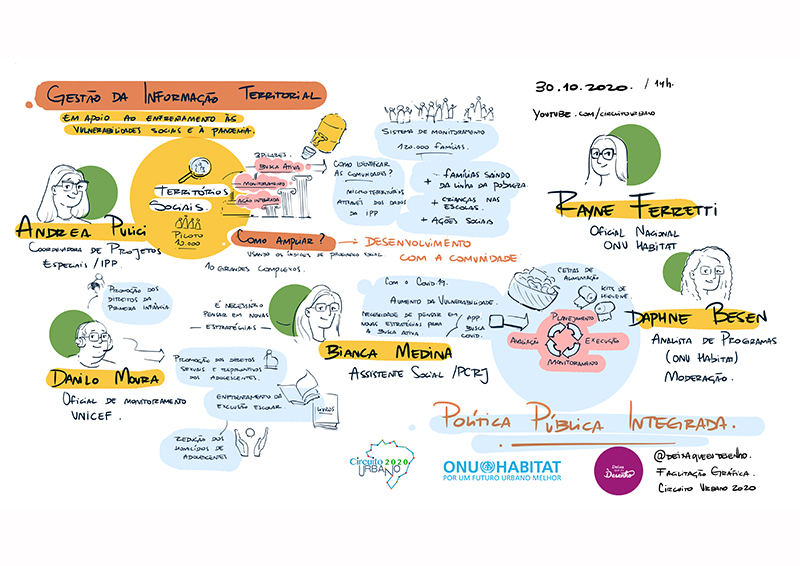 GESTÃO DA INFORMAÇÃO TERRITORIAL
EM APOIO AO ENFRENTAMENTO ÀS
VULNERABILIDADES SOCIAIS E À PANDEMIA.
30.10.2020. / 14h.
YOUTUBE.COM/CIRCUITOURBANO
ANDREA PULICI
COORDENADORA DE PROJETOS
ESPECIAIS / IPP.
TERRITÓRIOS
SOCIAIS.
PILOTO
10.000
3 PILARES
BUSCA ATIVA
MONITORAMENTO
AÇÃO INTEGRADA
COMO IDENTIFICAR
AS COMUNIDADES?
MICROTERRITÓRIOS
ATRAVÉS DOS DADOS
DA IPP
SISTEMA DE MONITORAMENTO
120.000 FAMÍLIAS.
+ FAMÍLIAS SAINDO
DA LINHA DA POBREZA.
+ CRIANÇAS NAS
ESCOLAS.
+ AÇÕES SOCIAIS
COMO AMPLIAR?
DESENVOLVIMENTO
COM A COMUNIDADE
USANDO OS ÍNDICES DE PROGRESSO SOCIAL
10 GRANDES COMPLEXOS.
RAYNE FERRETTI
OFICIAL NACIONAL
ONU HABITAT
DAPHNE BESEN
ANALISTA DE PROGRAMAS
(ONU HABITAT)
MODERAÇÃO.
PROMOÇÃO DOS
DIREITOS DA
PRIMEIRA INFÂNCIA
DANILO MOURA
OFICIAL DE MONITORAMENTO
UNICEF.
É NECESSÁRIO
PENSAR EM NOVAS
ESTRATÉGIAS
PROMOÇÃO DOS DIREITOS
SEXUAIS E REPRODUTIVOS
DOS ADOLESCENTES.
ENFRENTAMENTO DA
EXCLUSÃO ESCOLAR.
LIVROS
REDUÇÃO DOS
HOMICÍDIOS DE
ADOLESCENTES
BIANCA MEDINA
ASSISTENTE SOCIAL / PCRJ
COM O COVID-19.
AUMENTO DA VULNERABILIDADE.
NECESSIDADE DE PENSAR EM
NOVAS ESTRATÉGIAS PARA
A BUSCA ATIVA
APP.
BUSCA
COVID.
CESTAS DE
ALIMENTAÇÃO
KITS DE
HIGIENE
PLANEJAMENTO
AVALIAÇÃO
EXECUÇÃO
MONITORAMENTO
POLÍTICA PÚBLICA INTEGRADA.
Circuito 2020
URBANO
ONU HABITAT
POR UM FUTURO URBANO MELHOR
Deixa
que eu
Desenho
@DEIXAQUEEUDESENHO.
FACILITAÇÃO GRÁFICA.
CIRCUITO URBANO 2020